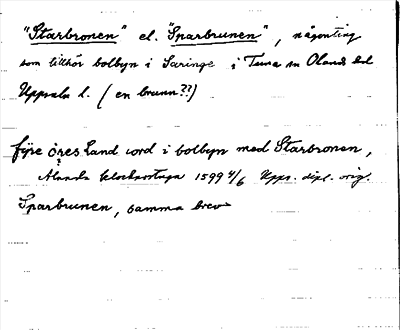 "Starbronen" el. "Sparbrunen", någonting
som tillhör bolbyn i Saringe i Tuna sn Olands hd
Uppsala l. (en brunn??)
fyre öres Land iord i bolbyn med Starbronen,
Alunda klockarstuga 1599 4/6 Upps. dipl. orig.
Sparbrunen, samma brev